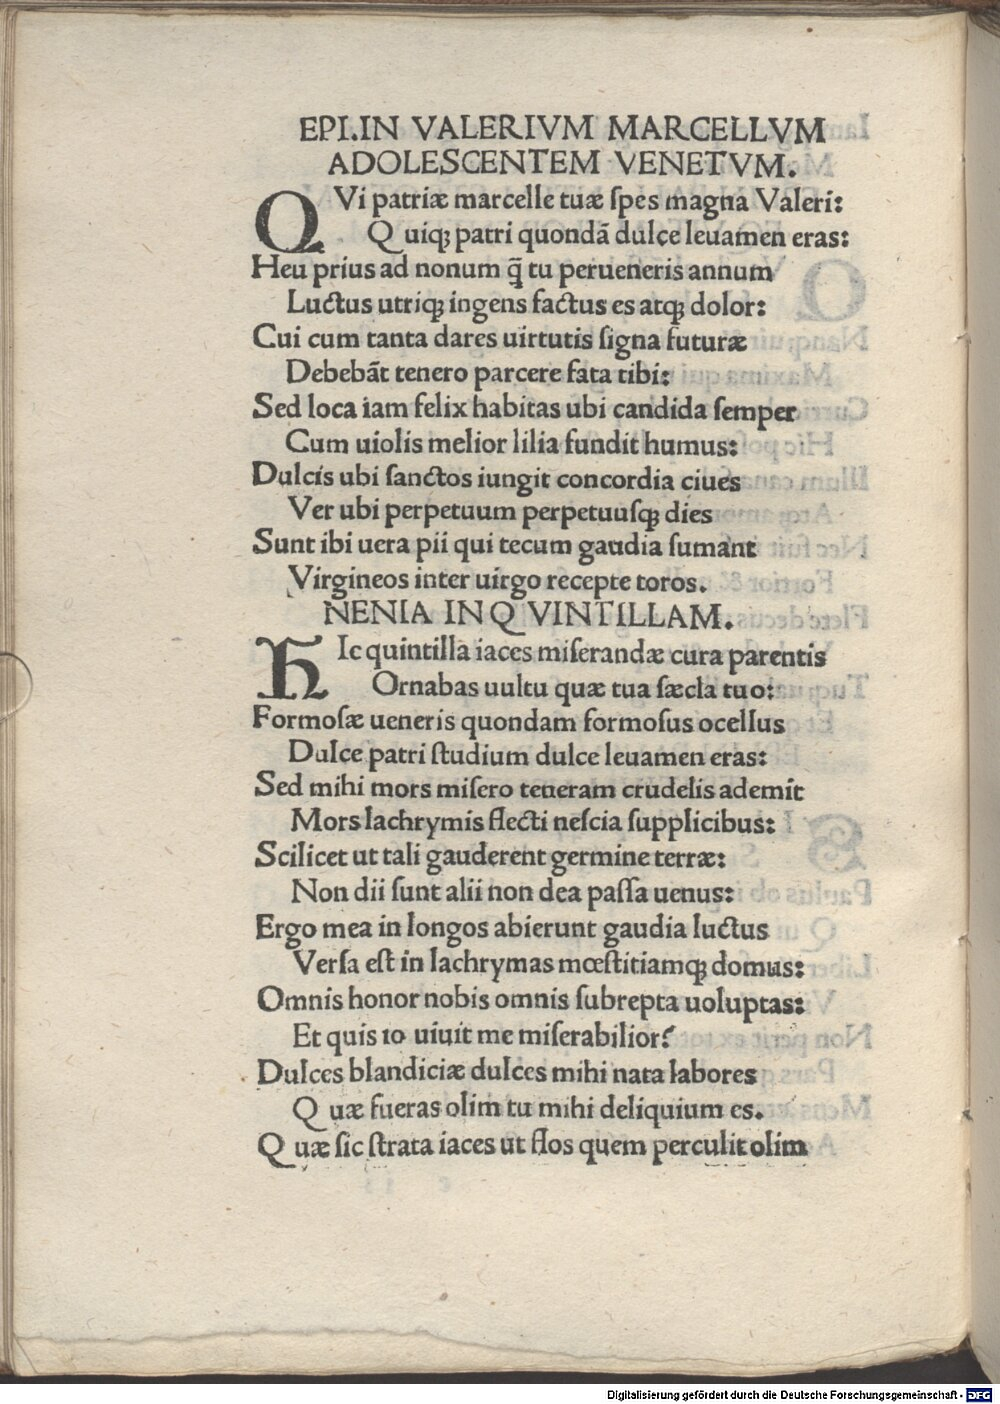 EPI.IN VALERIVM MARCELLVM
ADOLESCENTEM VENETVM.
QVi patriæ marcelle tuæ ſpes magna Valeri:
Quiqꝫ patri quondā dulce leuamen eras:
Heu prius ad nonum q̄ tu perueneris annum
Luctus utriqꝫ ingens factus es atqꝫ dolor:
Cui cum tanta dares uirtutis ſigna futuræ
Debebāt tenero parcere fata tibi:
Sed loca iam felix habitas ubi candida ſemper
Cum uiolis melior lilia fundit humus:
Dulcis ubi ſanctos iungit concordia ciues
Ver ubi perpetuum perpetuuſqꝫ dies
Sunt ibi uera pii qui tecum gaudia ſumant
Virgineos inter uirgo recepte toros.
NENIA IN QVINTILLAM.
HIc quintilla iaces miſerandæ cura parentis
Ornabas uultu quæ tua ſæcla tuo:
Formoſæ ueneris quondam formoſus ocellus
Dulce patri ſtudium dulce leuamen eras:
Sed mihi mors miſero teneram crudelis ademit
Mors lachrymis flecti neſcia ſupplicibus:
Scilicet ut tali gauderent germine terræ:
Non dii ſunt alii non dea paſſa uenus:
Ergo mea in longos abierunt gaudia luctus
Verſa eſt in lachrymas mœſtitiamqꝫ domus:
Omnis honor nobis omnis ſubrepta uoluptas:
Et quis io uiuit me miſerabilior?
Dulces blandiciæ dulces mihi nata labores
Quæ fueras olim tu mihi deliquium es.
Quæ ſic ſtrata iaces ut flos quem perculit olim
Digitalisierung gefördert durch die Deutsche Forschungsgemeinschaft - DFG